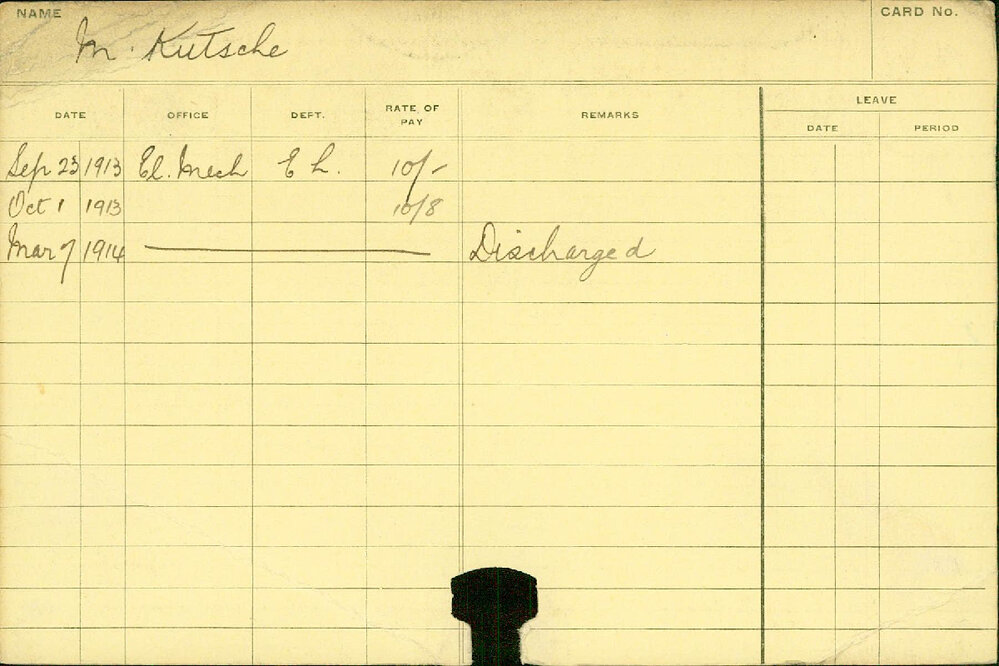 NAME
CARD No.
M. Kutsche
LEAVE
DATE OFFICE DEPT. RATE OF PAY REMARKS DATE PERIOD
Sep 23 1913 El. Mech E L. 10/-
Oct 1 1913 10/8
Mar 7 1914 Discharged